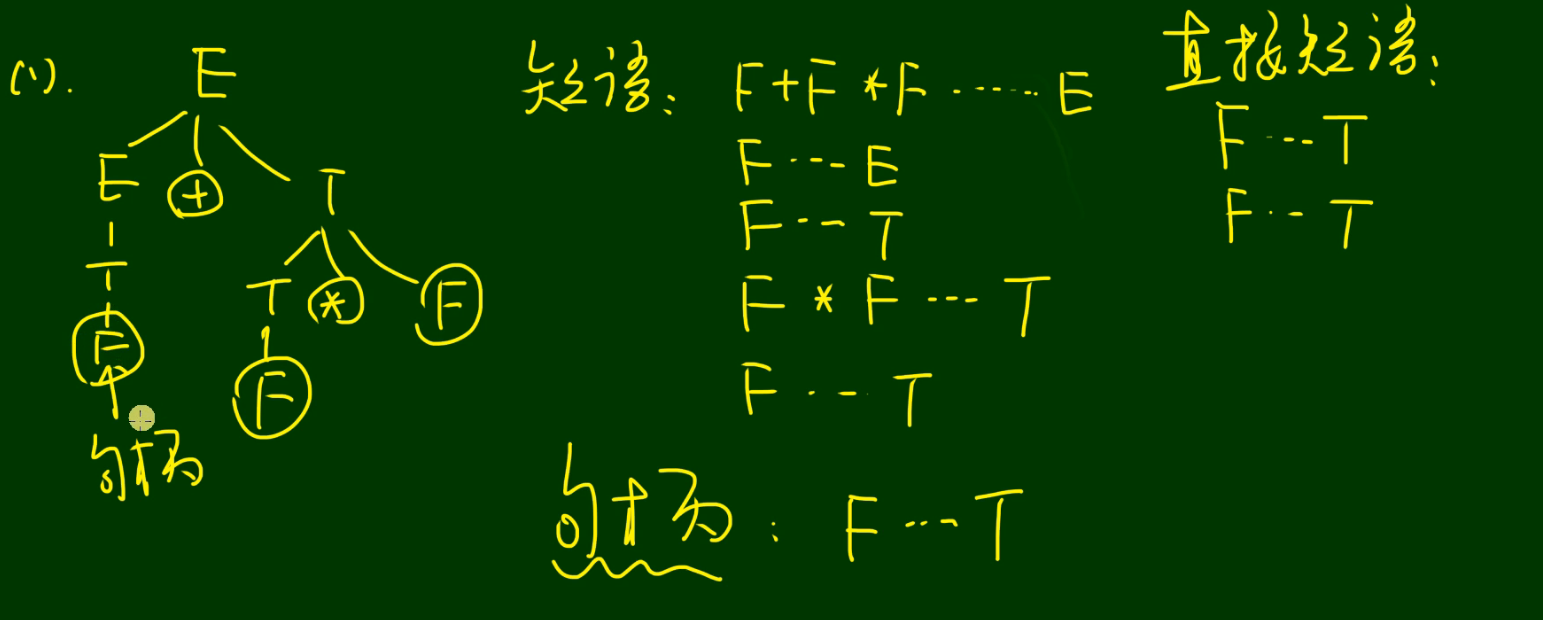 (1).
E
E + T
T T * F
F F
句柄
短语: F+F *F ······ E
F ···· E
F ··· T
F * F ··· T
F ··· T
句柄: F ··· T
直接短语:
F ··· T
F ··· T